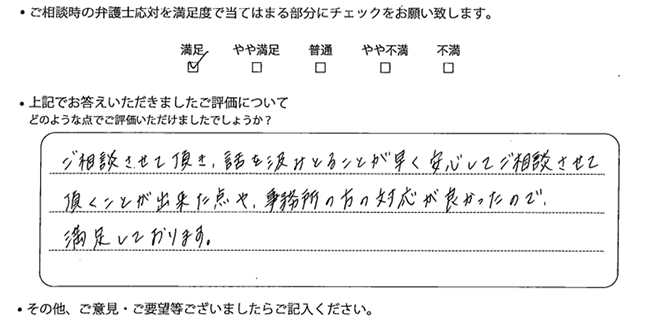 ・ご相談時の弁護士応対を満足度で当てはまる部分にチェックをお願い致します。
満足 やや満足 普通 やや不満 不満
☑ □ □ □ □
・上記でお答えいただきましたご評価について
どのような点でご評価いただけましたでしょうか?
ご相談させて頂き、話を汲みとることが早く安心してご相談させて
頂くことが出来た点や、事務所の方の対応が良かったので、
満足しております。
・その他、ご意見・ご要望等ございましたらご記入ください。